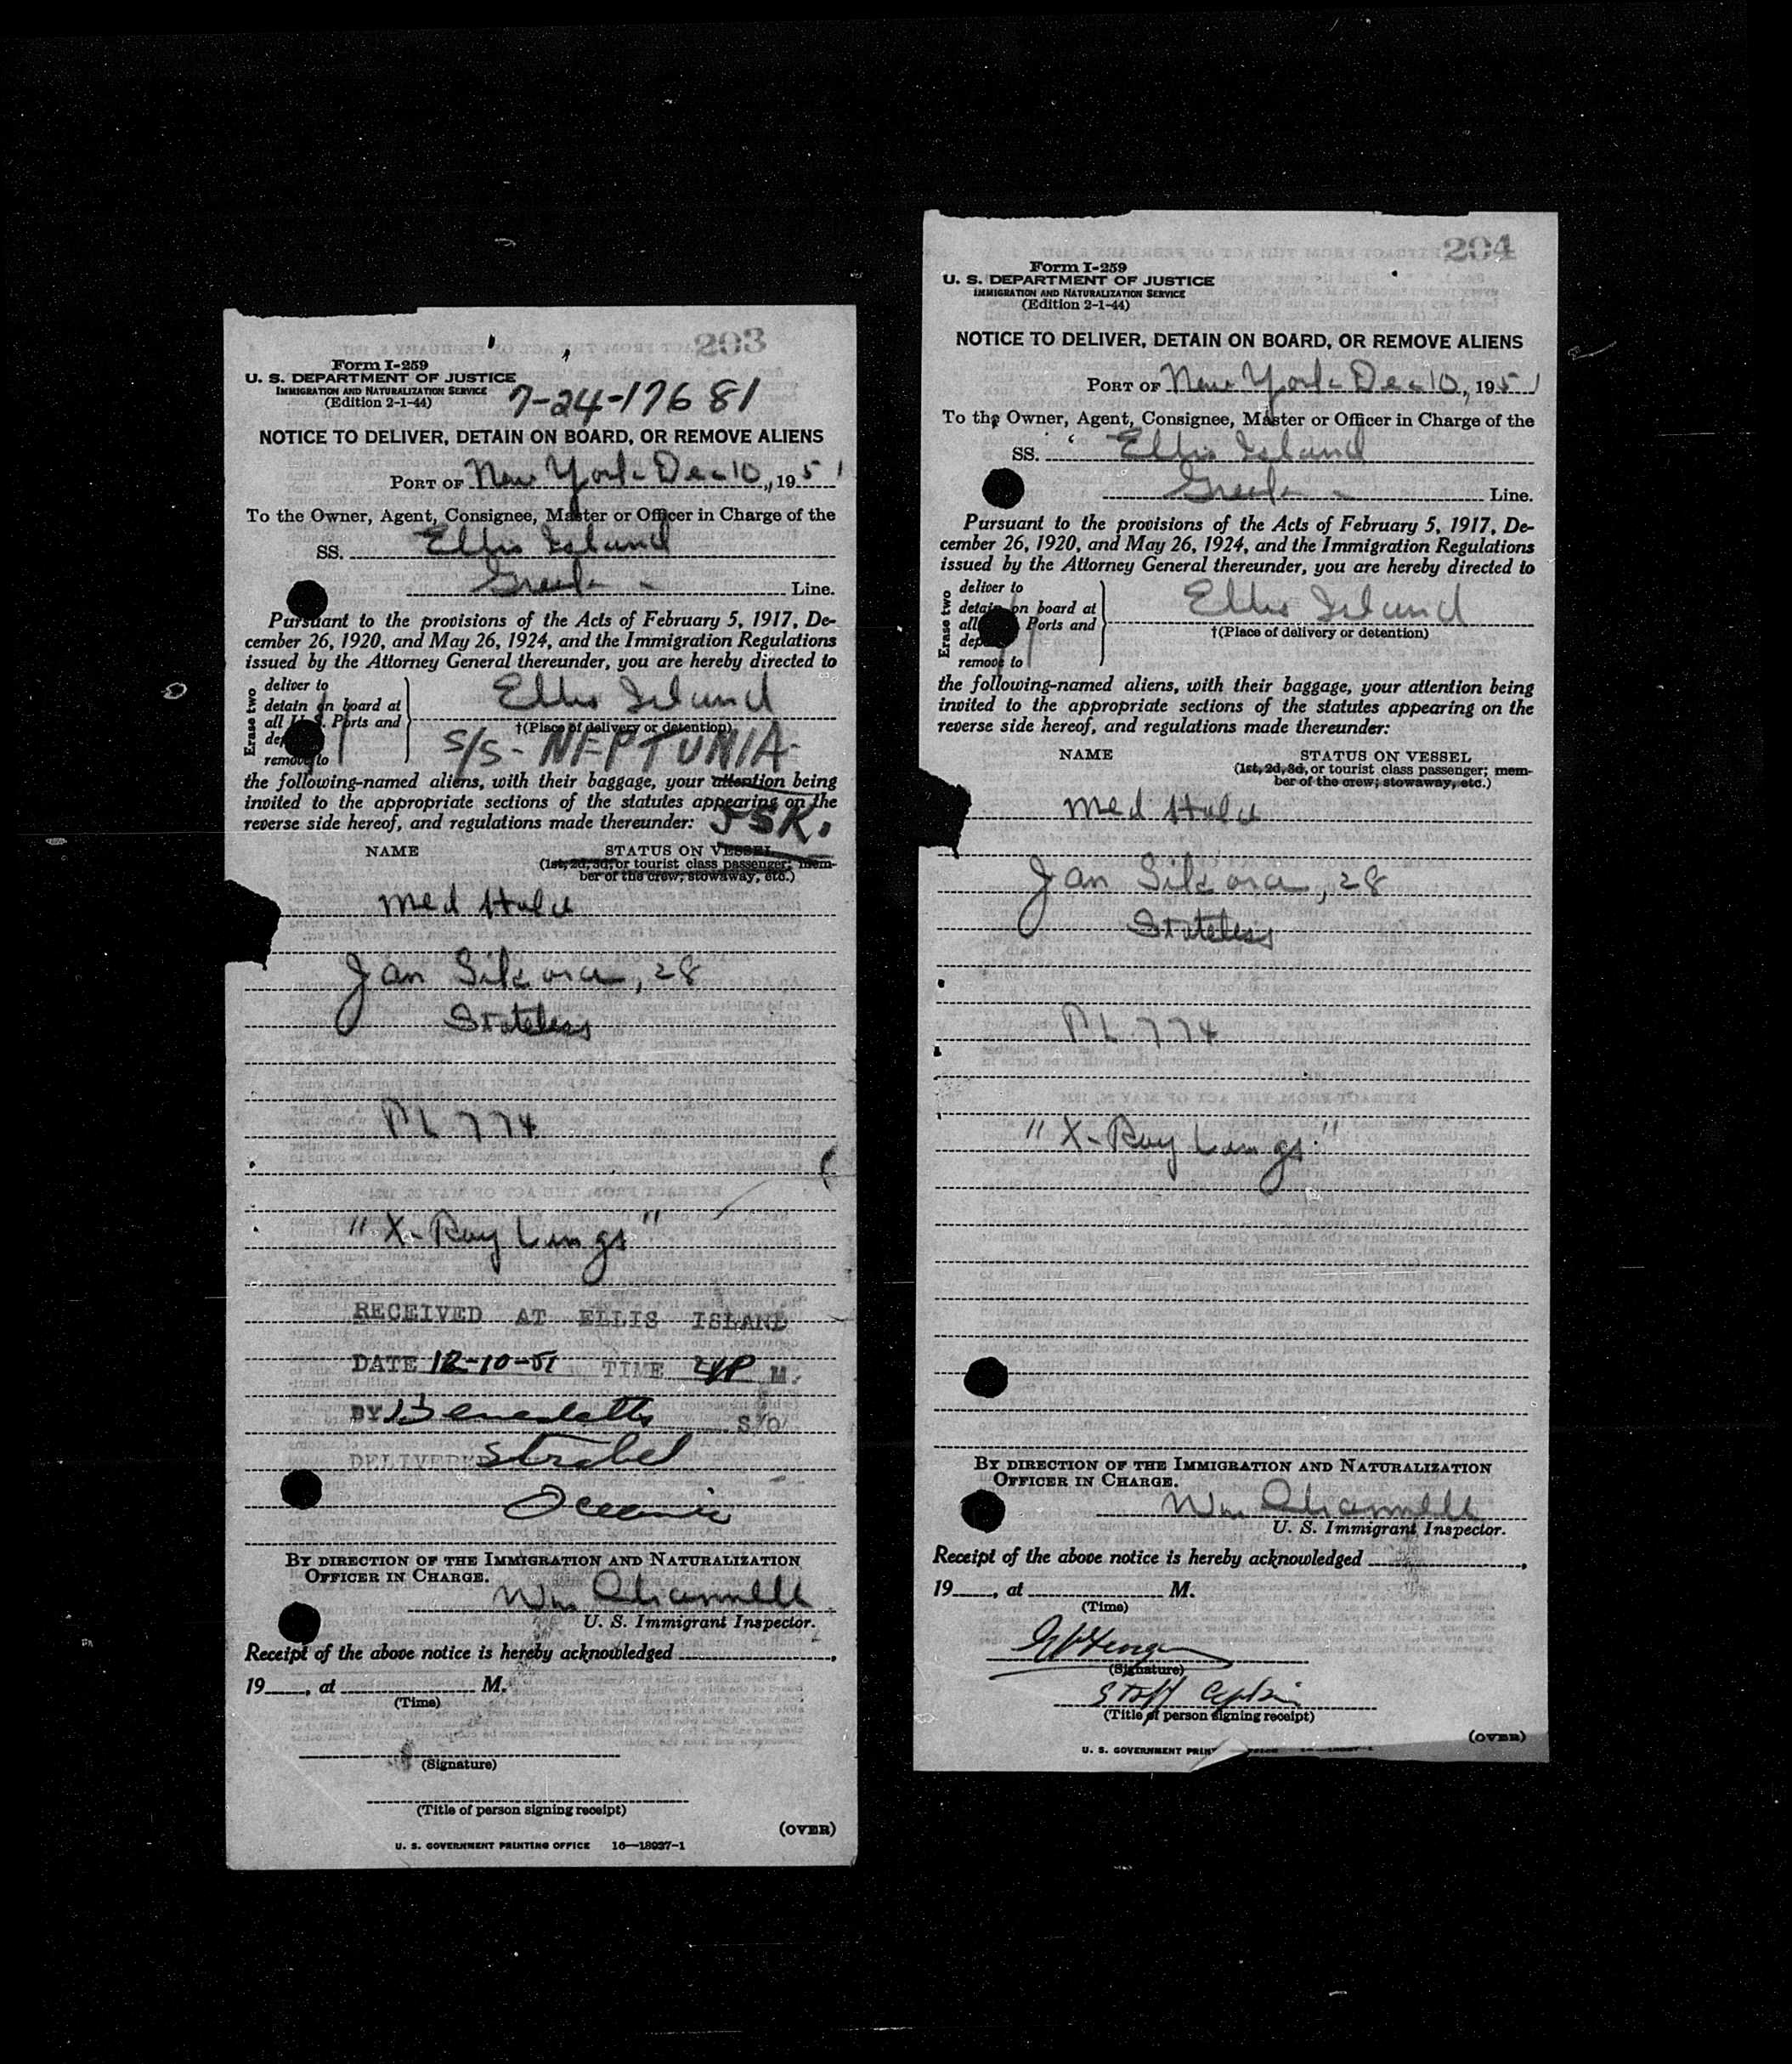 203
Form I-259
U. S. DEPARTMENT OF JUSTICE
IMMIGRATION AND NATURALIZATION SERVICE
(Edition 2-1-44)
7-24-17681
NOTICE TO DELIVER, DETAIN ON BOARD, OR REMOVE ALIENS
PORT OF New York Dec 10, 1951
To the Owner, Agent, Consignee, Master or Officer in Charge of the
SS. Ellis Island
Greek - Line.
Pursuant to the provisions of the Acts of February 5, 1917, De-
cember 26, 1920, and May 26, 1924, and the Immigration Regulations
issued by the Attorney General thereunder, you are hereby directed to
Erase two
deliver to
detain on board at
all U. S. Ports and
remove to
Ellis Island
†(Place of delivery or detention)
S/S - NEPTUNIA-
the following-named aliens, with their baggage, your attention being
invited to the appropriate sections of the statutes appearing on the
reverse side hereof, and regulations made thereunder: JSK.
NAME
STATUS ON VESSEL
(1st, 2d, 3d, or tourist class passenger; mem-
ber of the crew; stowaway, etc.)
Med Hold
Jan Sikora, 28
Stateless
PL 774
"X-Ray Lungs"
RECEIVED AT ELLIS ISLAND
DATE 12-10-51 TIME M.
BY S/O
DELIVERED Strobel
Oceanic
BY DIRECTION OF THE IMMIGRATION AND NATURALIZATION
OFFICER IN CHARGE.
Wm
U. S. Immigrant Inspector.
Receipt of the above notice is hereby acknowledged ,
19 , at M.
(Time)
(Signature)
(Title of person signing receipt)
(OVER)
U. S. GOVERNMENT PRINTING OFFICE 16—18937-1
204
Form I-259
U. S. DEPARTMENT OF JUSTICE
IMMIGRATION AND NATURALIZATION SERVICE
(Edition 2-1-44)
NOTICE TO DELIVER, DETAIN ON BOARD, OR REMOVE ALIENS
PORT OF New York Dec 10, 1951
To the Owner, Agent, Consignee, Master or Officer in Charge of the
SS. Ellis Island
Greek - Line.
Pursuant to the provisions of the Acts of February 5, 1917, De-
cember 26, 1920, and May 26, 1924, and the Immigration Regulations
issued by the Attorney General thereunder, you are hereby directed to
Erase two
deliver to
detain on board at
all Ports and
remove to
Ellis Island
†(Place of delivery or detention)
the following-named aliens, with their baggage, your attention being
invited to the appropriate sections of the statutes appearing on the
reverse side hereof, and regulations made thereunder:
NAME
STATUS ON VESSEL
(1st, 2d, 3d, or tourist class passenger; mem-
ber of the crew; stowaway, etc.)
Med Hold
Jan Sikora, 28
Stateless
PL 774
"X-Ray Lungs"
BY DIRECTION OF THE IMMIGRATION AND NATURALIZATION
OFFICER IN CHARGE.
Wm
U. S. Immigrant Inspector.
Receipt of the above notice is hereby acknowledged ,
19 , at M.
(Time)
(Signature)
Staff Captain
(Title of person signing receipt)
(OVER)
U. S. GOVERNMENT